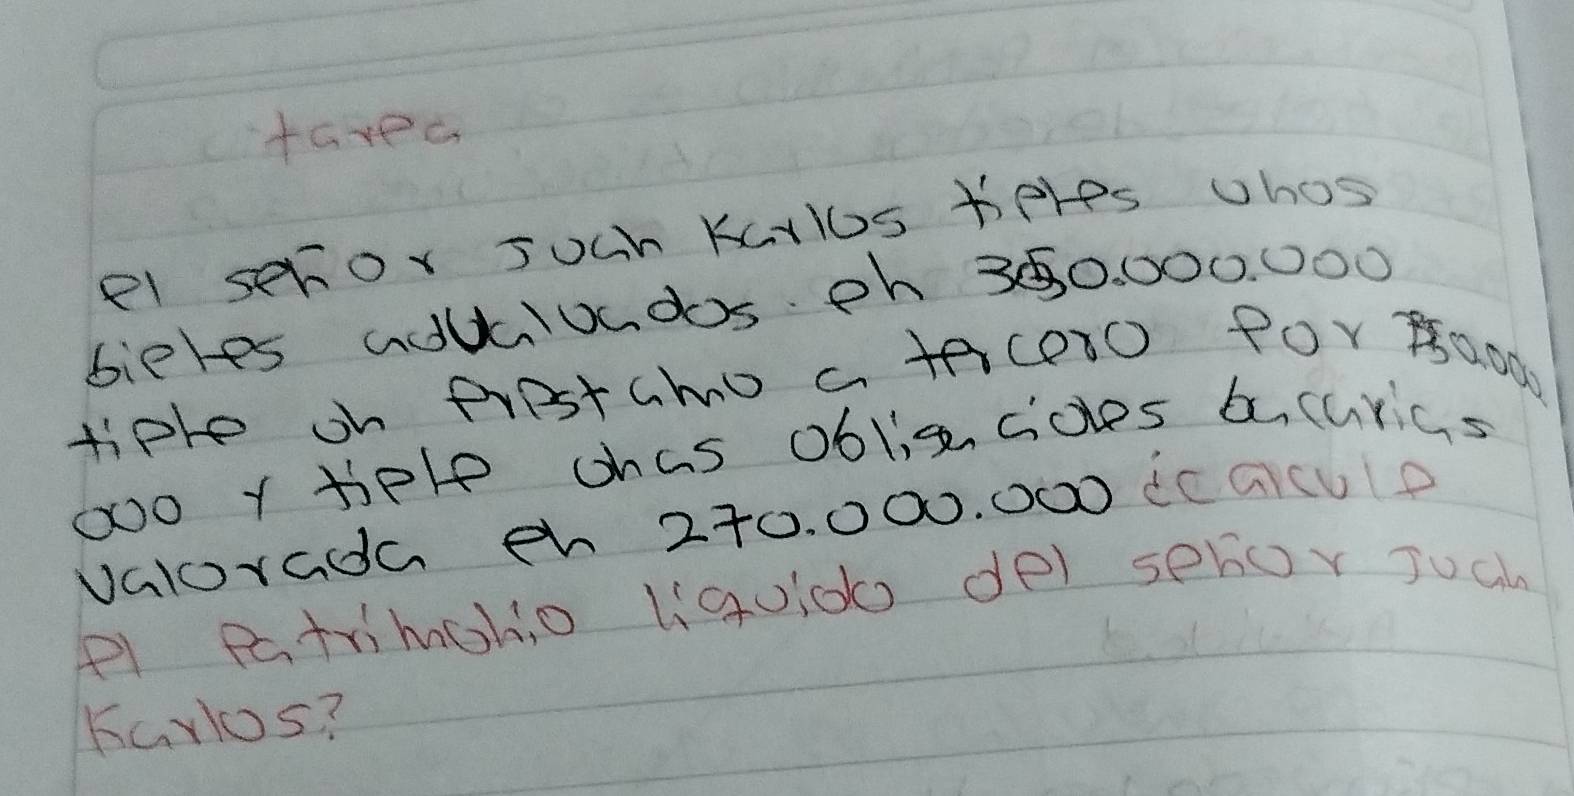 tarea
el señor Juan Karlos tienes unos
bienes adualuados en 350.000.000
tiene un prestamo a tercero por
000 y tiene unas obligaciones bancarias
valorada en 270.000.000 ¿calcule
el Patrimonio liquido del señor Juan
Karlos?